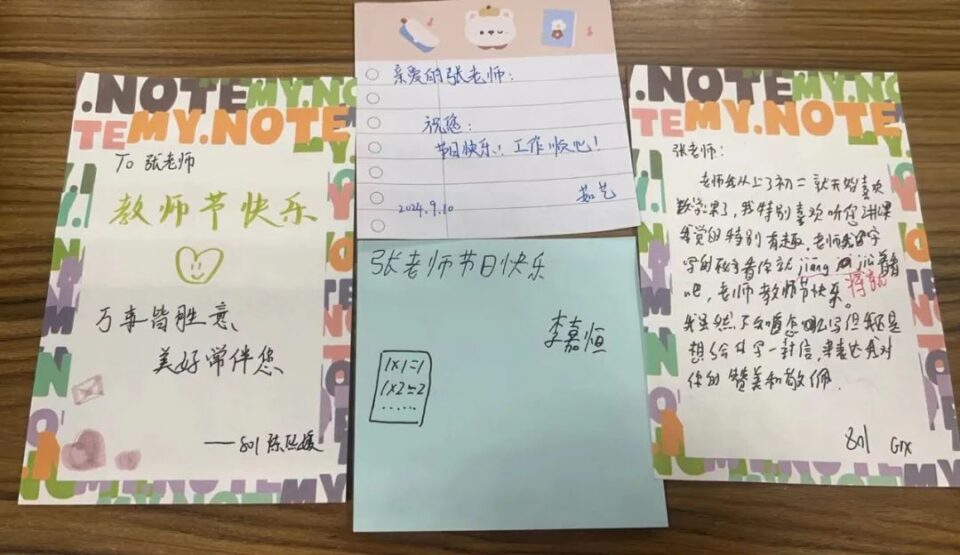 .NOTE MY.NO
TE MY.NOTE
To 张老师
教师节快乐
万事皆胜意、
美好常伴您
——801 陈
亲爱的张老师:
祝您:
节日快乐!工作顺心!
2024.9.10
茹艺
张老师节日快乐
李嘉恒
1×1=1
1×2=2
......
.NOTE MY.NO
TE MY.NOTE
张老师:
老师我从上了初二就开始喜欢
数学课了,我特别喜欢听您讲课
我觉的特别有趣,老师我
字的 看你就 jiang jiu 着看
将就
吧,老师教师节快乐。
我虽然不知道怎么写但我还是
想给 写一封信,来表达我对
你的赞美和敬佩.
801 GTX